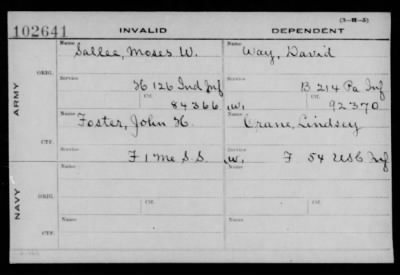 (3-M-5)
102641 INVALID DEPENDENT
Name Sallee, Moses W. Name Way, David
ARMY
ORIG.
Service H 126 Ind Inf Service B 214 Pa Inf
Ctf. 84366 Ctf. W. 92370
Name Foster, John H. Name Crane, Lindsey
CTF.
Service F 1 Me S.S. Service W. F 54 USC Inf
NAVY
Name Name
ORIG.
Service Service
Ctf. Ctf.
Name Name
CTF.